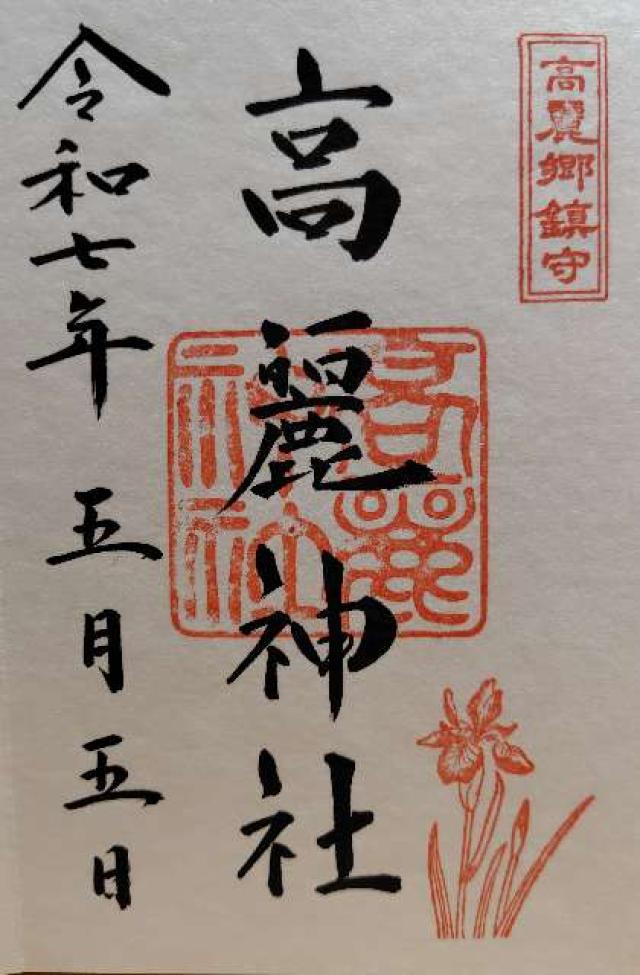 高麗郷鎮守
高麗神社
高麗神社
令和七年 五月五日